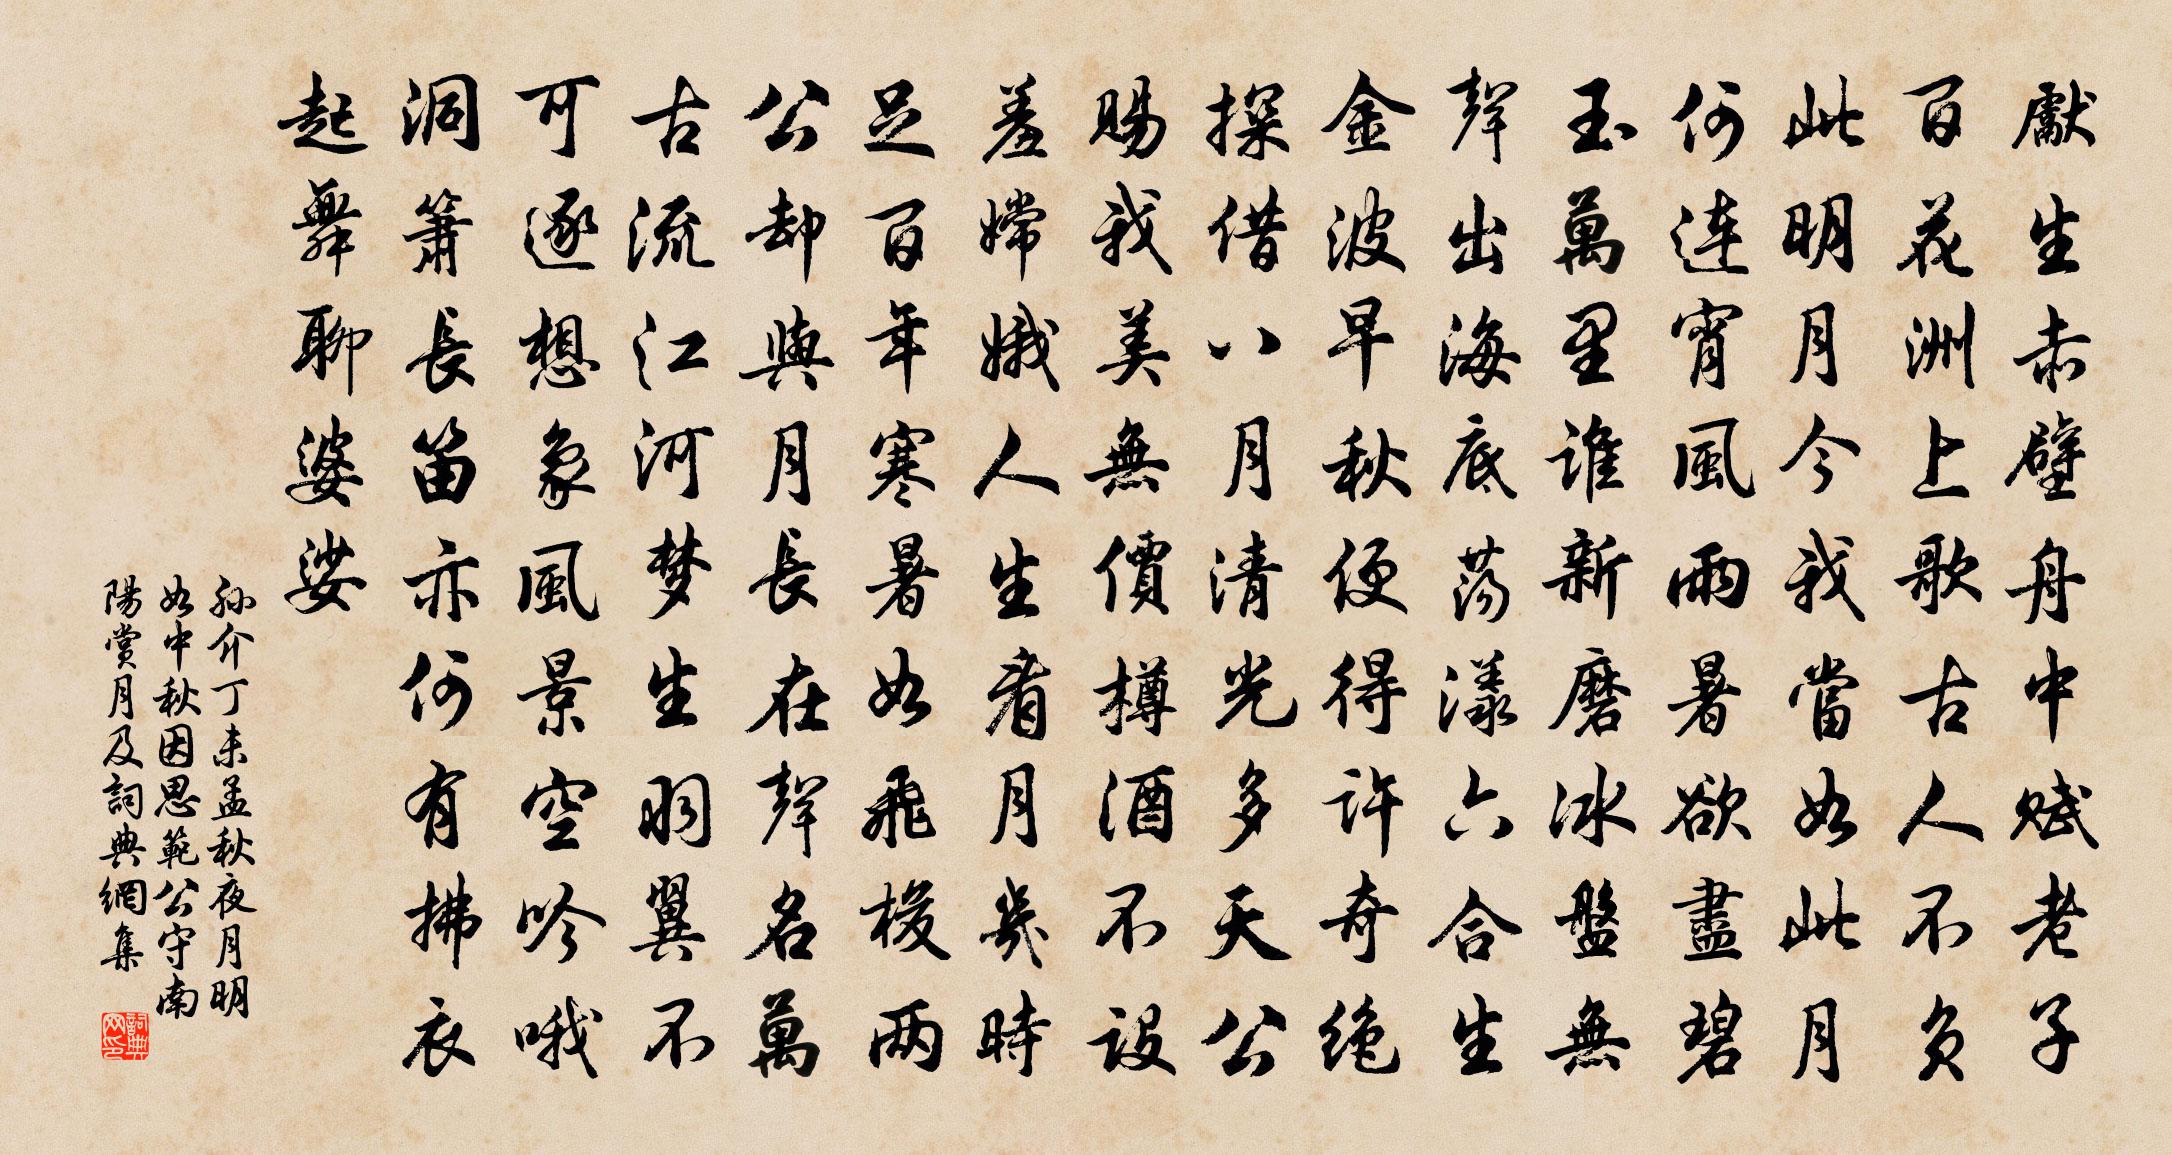 獻生赤壁舟中賦老子
百花洲上歌古人不負
此明月今我當如此月
何連宵風雨暑欲盡碧
玉萬里誰新磨冰盤無
聲出海底蕩漾六合生
金波早秋便得許奇絶
探借八月清光多天公
賜我美無價樽酒不設
羞嫦娥人生看月幾時
足百年寒暑如飛梭两
公却與月長在聲名萬
古流江河梦生羽翼不
可逐想象風景空吟哦
洞簫長笛亦何有拂衣
起舞聊婆娑
孫介丁未孟秋夜月明
如中秋因思範公守南
陽賞月及詞典網集
詞典网印